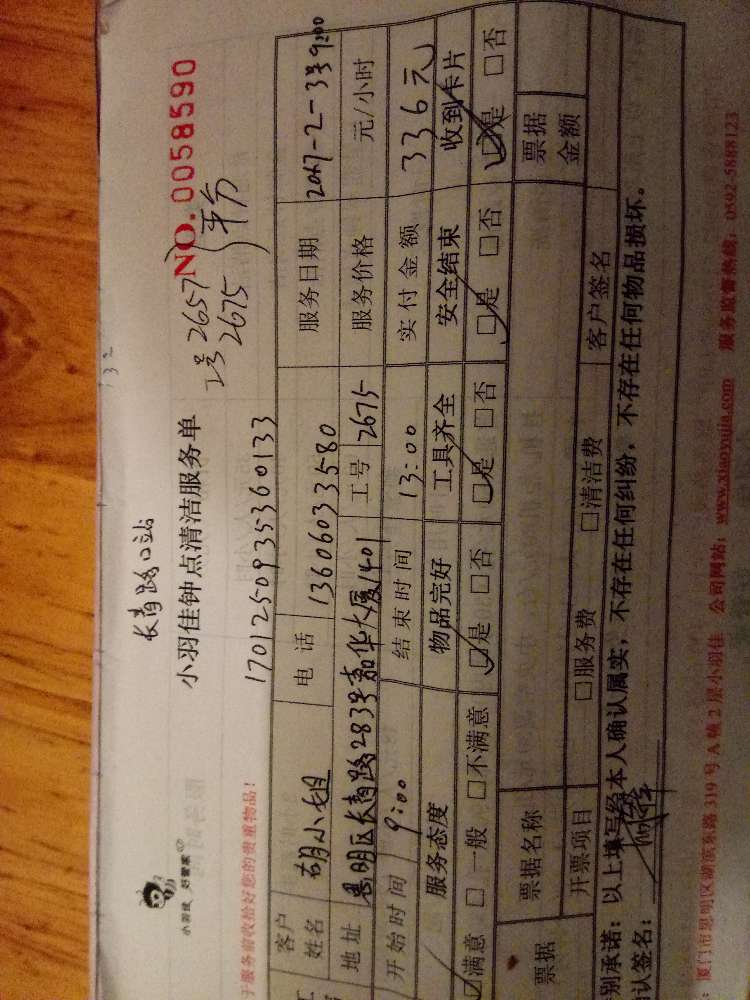 长青路口站
小羽佳 好管家
小羽佳钟点清洁服务单
NO. 0058590
工号 2657
2675 平分
于服务前收拾好您的贵重物品!
1701250935360133
客户姓名 胡小姐 电 话 13606033580 服务日期 2017-2-3号9:00
地 址 思明区长青路283号嘉华大厦1401 工号 2675 服务价格 元/小时
开始时间 9:00 结束时间 13:00 实付金额 336元
服务态度 物品完好 工具齐全 安全结束 收到卡片
☑满意 □一般 □不满意 ☑是 □否 ☑是 □否 ☑是 □否 ☑是 □否
票据 票据名称 票据金额
开票项目 □服务费 □清洁费 客户签名
别承诺:以上填写经本人确认属实,不存在任何纠纷,不存在任何物品损坏。
认签名:
:厦门市思明区湖滨东路 319 号 A 幢 2 层小羽佳 公司网站:www.xiaoyujia.com 服务监督热线:0592-5888123